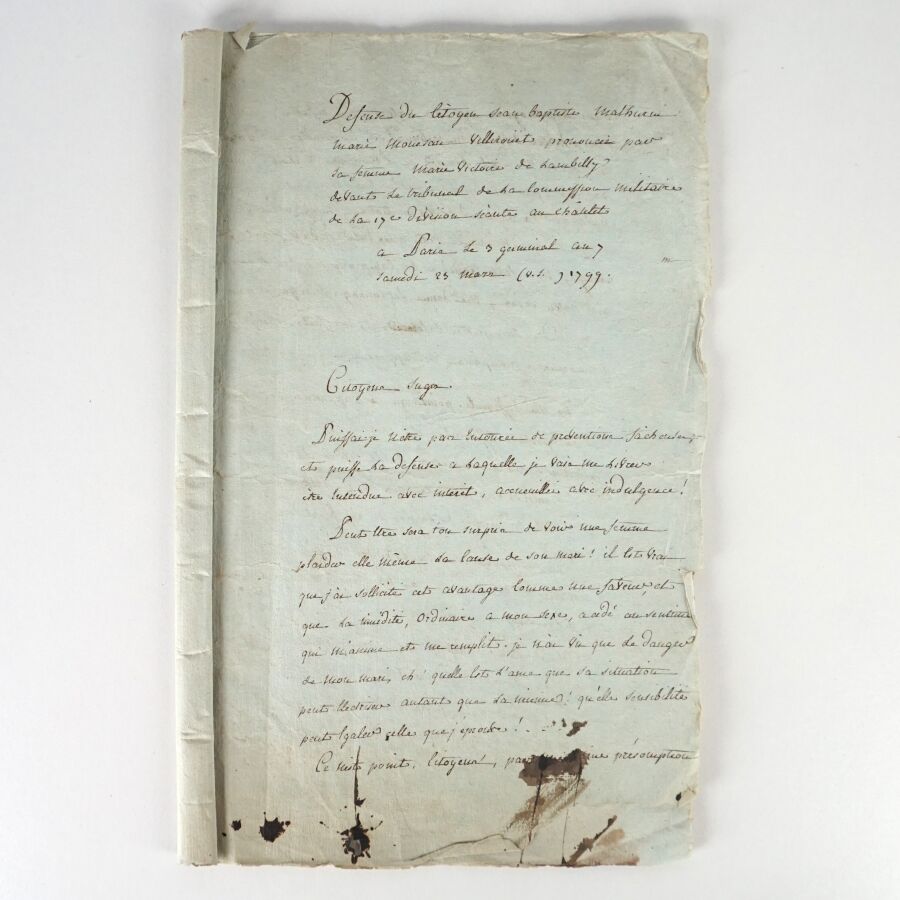 Defense du Citoyen Jean baptiste Mathurin
marie Mouësan Villirouët prononcée par
sa femme Marie Victoire de Lambilly
devant Le tribunal de La Commission militaire
de La 17e division séante au châtelet
a Paris Le 3 germinal an 7
samedi 23 mars (v.s.) 1799.
Citoyens Juges.
Puissai-je n'être pas Entourée de préventions fâcheuses,
et puisse La défense a Laquelle je vais me Livrer
être Entendue avec interêt, accueillie avec indulgence!
Peut Etre sera t'on surpris de voir une femme
plaider elle même La Cause de son mari! il Est vrai
que j'ai sollicité cet avantage Comme une faveur, et
que La timidité, Ordinaire a mon sexe, a cédé au sentiment
qui m'anime et me remplit. je n'ai vu que Le danger
de mon mari, eh! quelle Est L'ame que sa situation
peut Electriser autant que La mienne! qu'elle sensibilité
peut Egaler celle que j'éprouve!
Ce n'est point, Citoyens, par une présomption